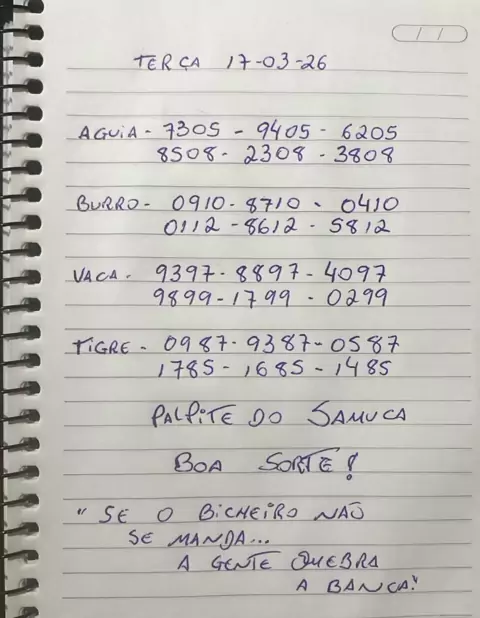 / /
TERÇA 17-03-26
AGUIA - 7305 - 9405 - 6205
8508 - 2308 - 3808
BURRO - 0910 - 8710 - 0410
0112 - 8612 - 5812
VACA - 9397 - 8897 - 4097
9899 - 1799 - 0299
TIGRE - 0987 - 9387 - 0587
1785 - 1685 - 1485
PALPITE DO SAMUCA
BOA SORTE!
"SE O BICHEIRO NÃO
SE MANDA...
A GENTE QUEBRA
A BANCA!"